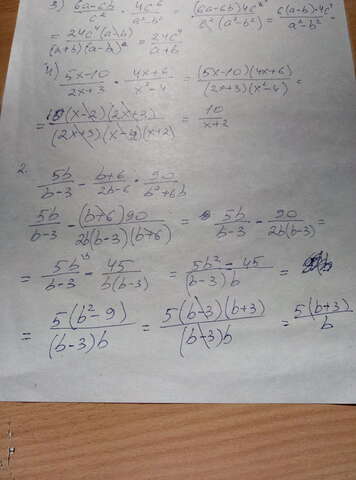 3) (6a-6b)/c² · 4c⁶/(a²-b²) = (6a-6b)4c⁶/(c²(a²-b²)) = 6(a-b)·4c⁴/(a²-b²) =
= 24c⁴(a-b)/((a+b)(a-b)) = 24c⁴/(a+b)
4) (5x-10)/(2x+3) · (4x+6)/(x²-4) = (5x-10)(4x+6)/((2x+3)(x²-4)) =
= 10(x-2)(2x+3)/((2x+3)(x-2)(x+2)) = 10/(x+2)
2.
5b/(b-3) - (b+6)/(2b-6) · 90/(b²+6b)
5b/(b-3) - (b+6)90/(2b(b-3)(b+6)) = 5b/(b-3) - 90/(2b(b-3)) =
= 5b/(b-3) - 45/(b(b-3)) = (5b²-45)/((b-3)b) =
= 5(b²-9)/((b-3)b) = 5(b-3)(b+3)/((b-3)b) = 5(b+3)/b